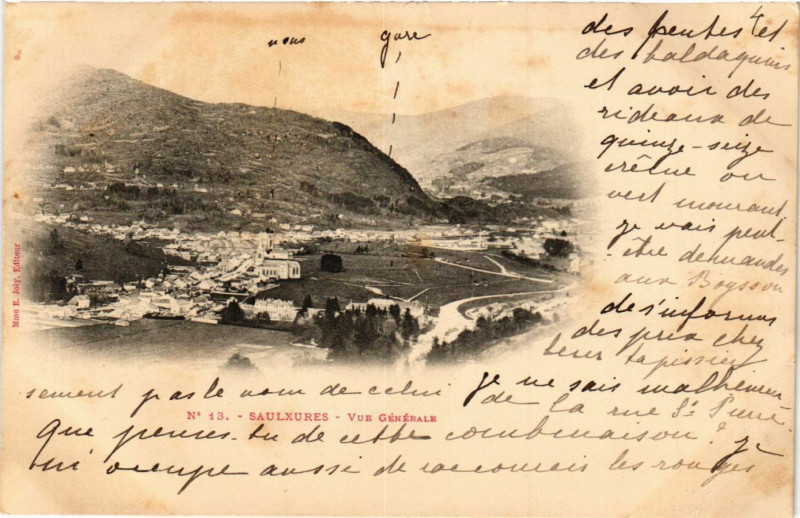 4
nous
gare
des pentes et
des baldaquins
et avoir des
rideaux de
quinze-seize
crême ou
vert mourant
je vais peut-
être demander
aux Boysson
de s'informer
des prix chez
leur tapissier
Je ne sais malheureu
sement pas le nom de celui
de la rue St Pierre.
Que penses-tu de cette combinaison? je
m'occupe aussi de raccourcis les rouges
N° 13. - SAULXURES - VUE GÉNÉRALE
Mme E. Joly, Editeur